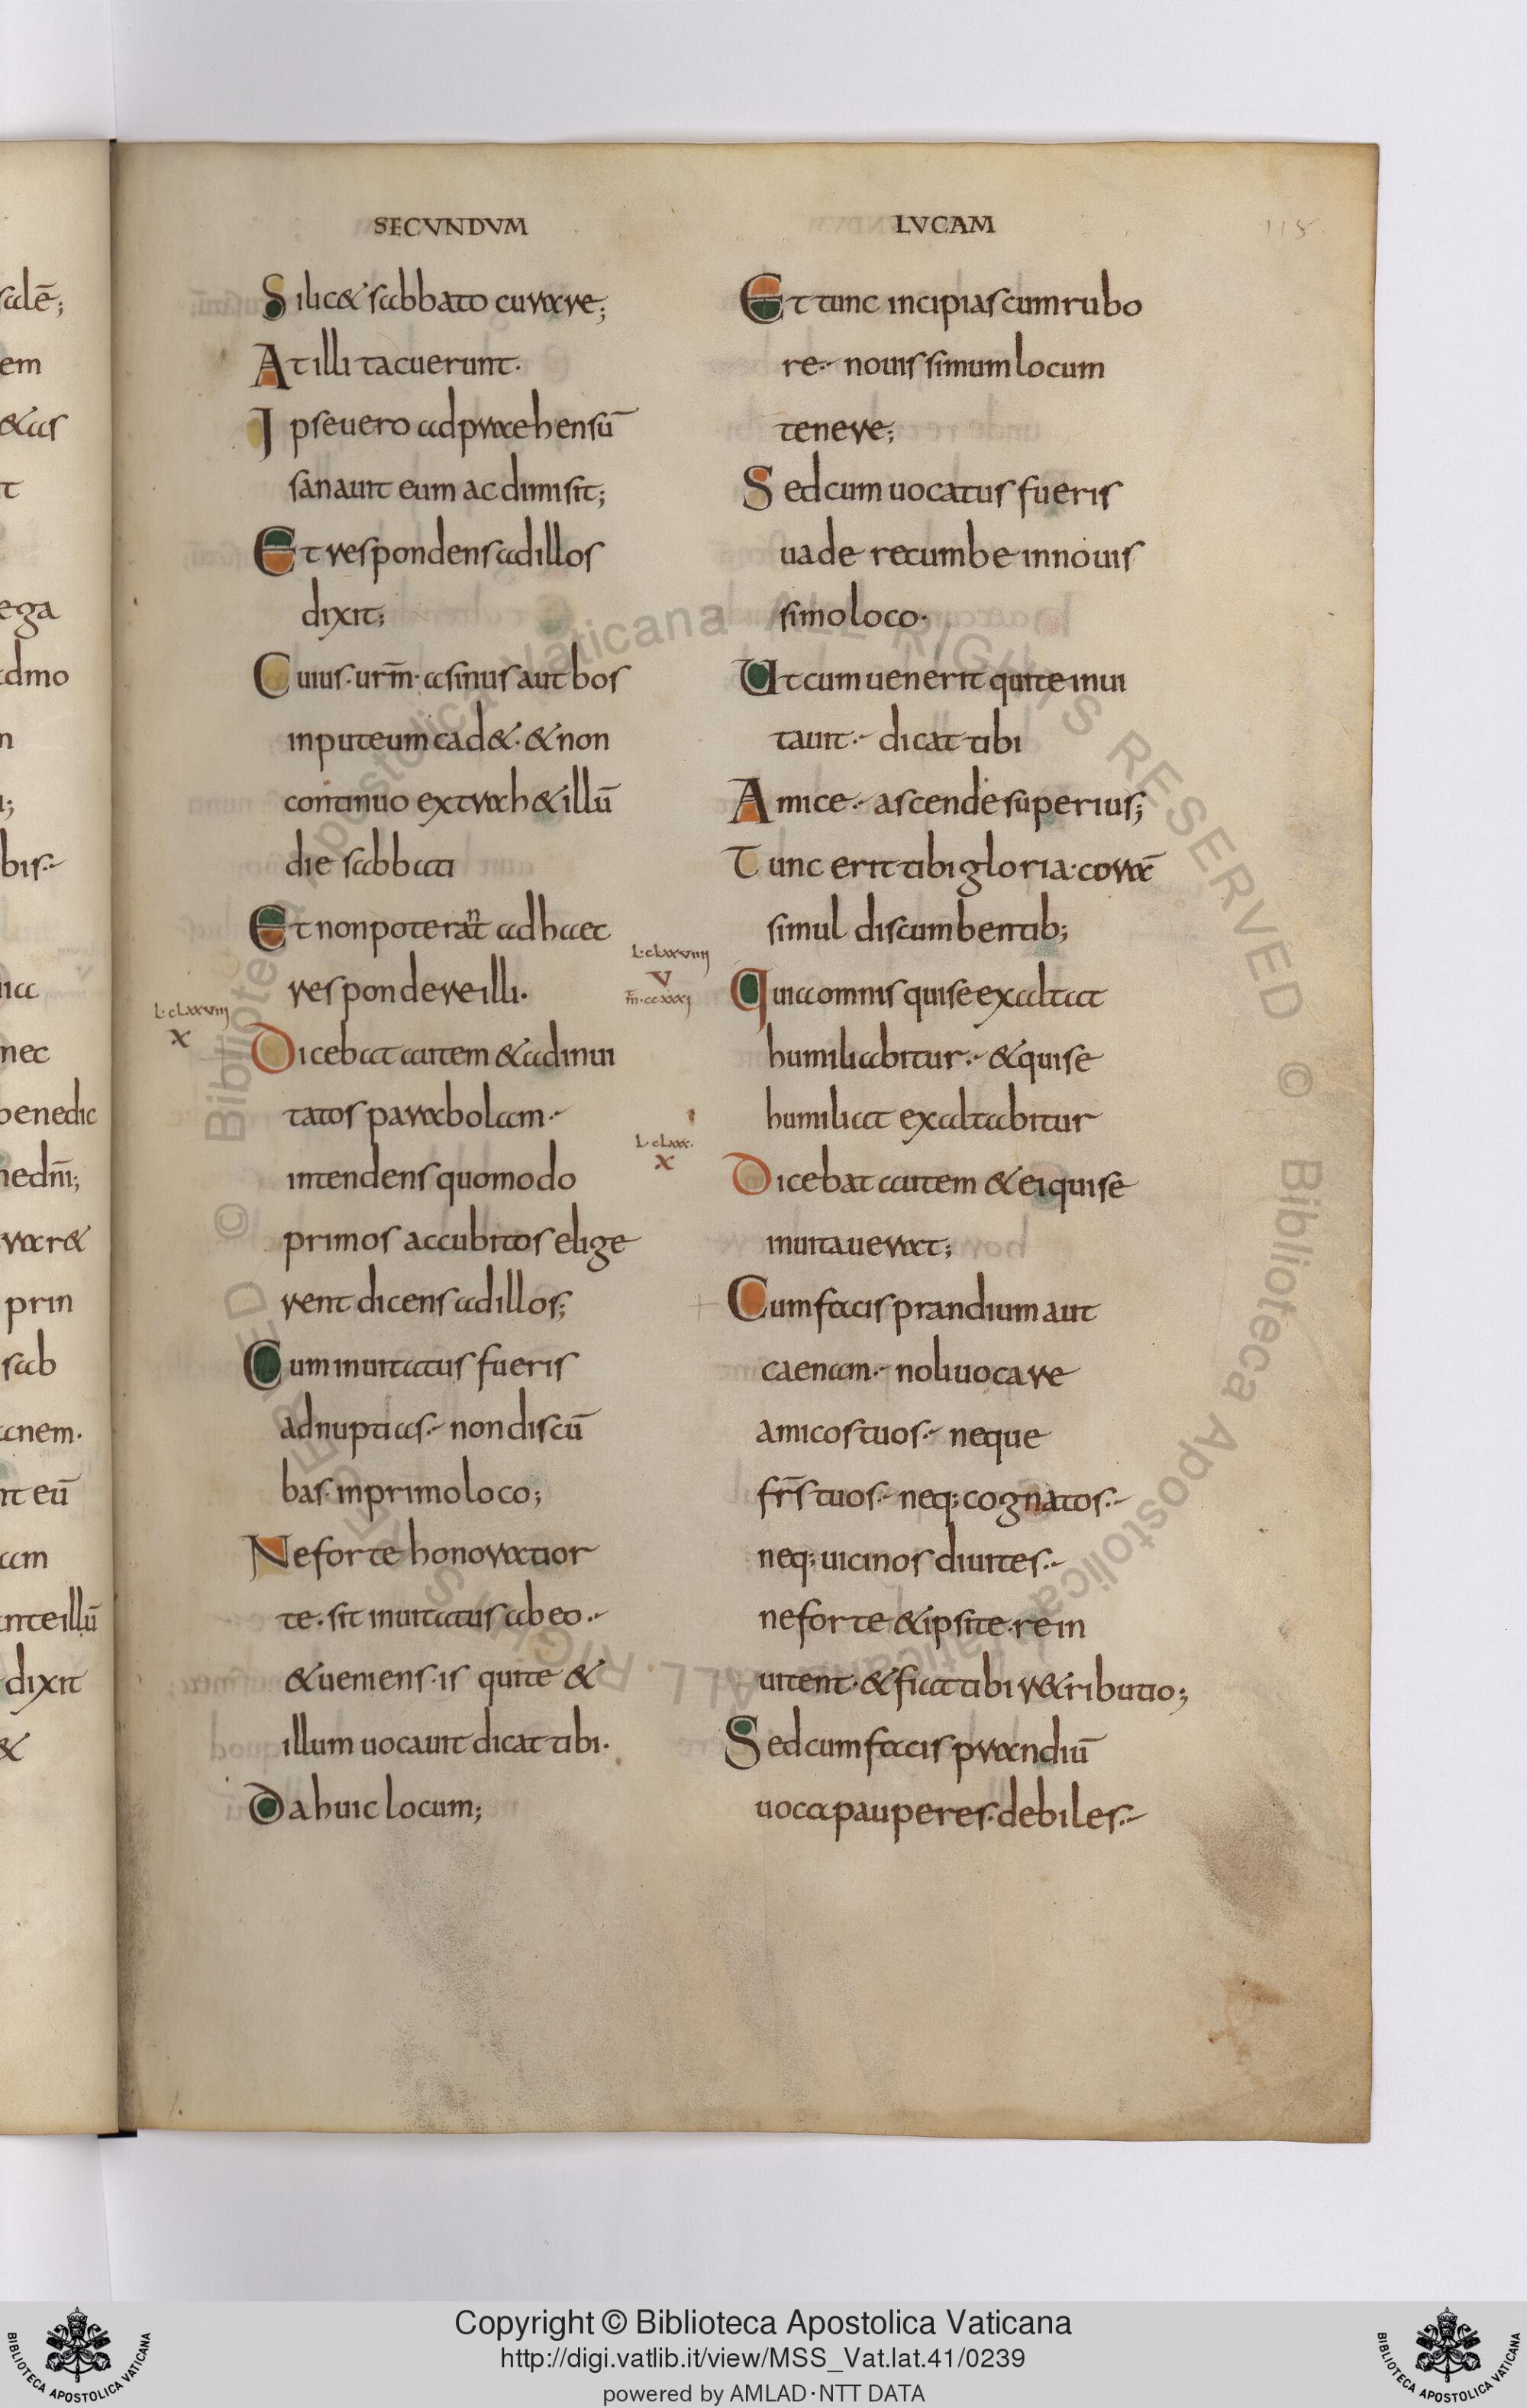 SECVNDVM
Silic& sabbato curare;
At illi tacuerunt.
Ipse uero adprehensū
sanauit eum ac dimisit;
Et respondens ad illos
dixit;
Cuius·urm̄·asinus aut bos
in puteum cad&·&non
continuo extrah&illū
die sabbati
Et non poterant ad haec
respondere illi.
L·cLxxviii
X
Dicebat autem & ad inui
tatos parabolam·-
intendens quomodo
primos accubitos elige
rent dicens ad illos;
Cum inuitatus fueris
ad nuptias·- non discū
bas in primo loco;
Ne forte honoratior
te·sit inuitatus ab eo·-
&ueniens·is qui te &
illum uocauit dicat tibi·
Da huic locum;
LVCAM
118
Et tunc incipias cum rubo
re·- nouissimum locum
tenere;
Sed cum uocatus fueris
uade recumbe in nouis
simo loco·
Ut cum uenerit qui te inui
tauit·- dicat tibi
Amice·- ascende superius;
Tunc erit tibi gloria·corā
simul discumbentib;
L·cLxxviiii
V
m̄·ccxxxi
Quia omnis qui se exaltat
humiliabitur·- &qui se
humiliat exaltabitur
L·cLxxx·
X
Dicebat autem & ei qui se
inuitauerat;
Cum facis prandium aut
caenam·- noli uocare
amicos tuos·- neque
fr̄s tuos·- neq; cognatos·-
neq; uicinos diuites·-
ne forte & ipsi te rein
uitent·& fiat tibi r&ributio;
Sed cum facis prandiū
uoca pauperes·debiles·-
salē;
em
&as
t
ega
dmo
n
bis·-
nec
benedic
prin
sab
it eū
am
nte illū
dixit
&
© Biblioteca Apostolica Vaticana ALL RIGHTS RESERVED © Biblioteca Apostolica Vaticana ALL RIGHTS RESERVED
Copyright © Biblioteca Apostolica Vaticana
http://digi.vatlib.it/view/MSS_Vat.lat.41/0239
powered by AMLAD·NTT DATA
BIBLIOTECA APOSTOLICA VATICANA
BIBLIOTECA APOSTOLICA VATICANA